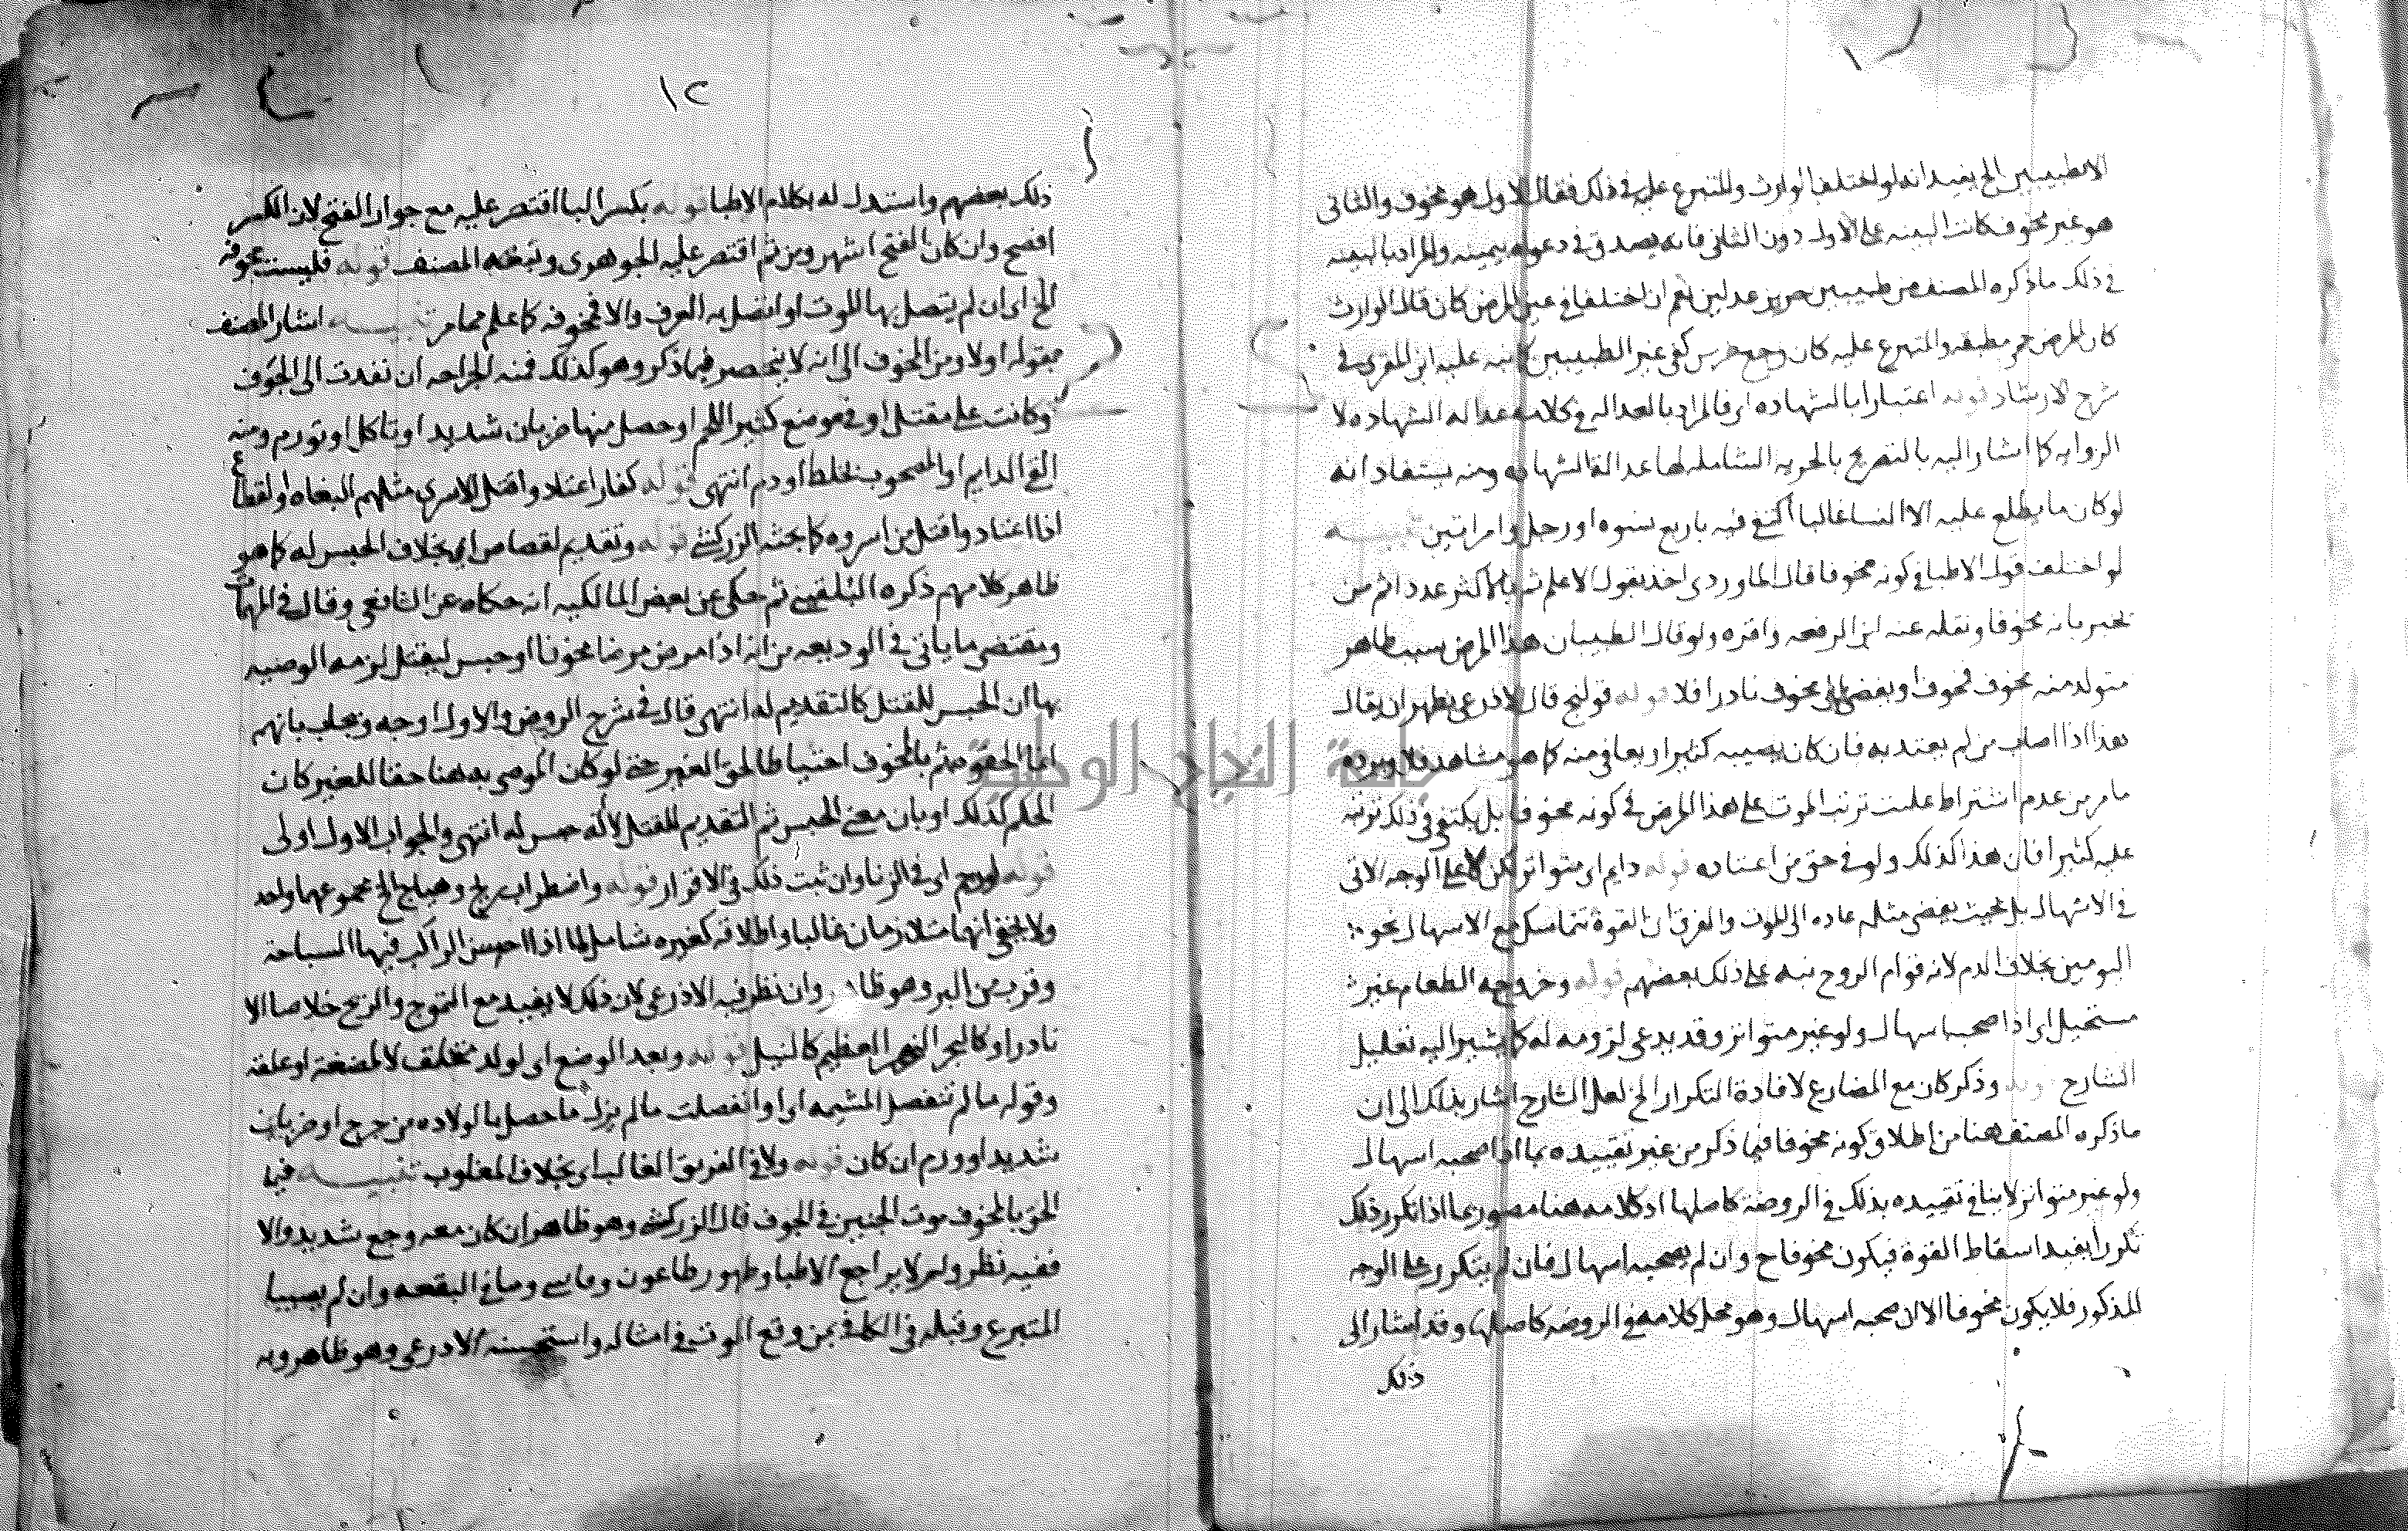 الا بطبيبين الخ يفيد انه لو اختلف الوارث والمتبرع عليه في ذلك فقال الاول هو مخوف والثاني
هو غير مخوف كانت البينه على الاول دون الثاني فانه يصدق في دعواه بيمينه والمراد بالبينه
في ذلك ما ذكره المصنف من طبيبين حرين عدلين نعم ان اختلفا في عين المرض كان قال الوارث
كان المرض حمى مطبقه والمتبرع عليه كان وجع ضرس كفى غير الطبيبين كما نبه عليه ابن المقري في
شرح الارشاد قوله اعتبارا بالشهاده اي فالمراد بالعداله في كلامه عداله الشهاده لا
الروايه كما اشار اليه بالتصريح بالحريه الشامله لها عدالة الشهاده ومنه يستفاد انه
لو كان ما يطلع عليه الا النسا غالبا اكتفى فيه باربع نسوه او رجل وامراتين تنبيه
لو اختلف قول الاطبا في كونه مخوفا قال الماوردي اخذ بقول الاعلم ثم بالاكثر عددا ثم من
يخبر بانه مخوفا ونقله عنه ابن الرفعه واقره ولو قال الطبيبان هذا المرض سبب ظاهر
متولد منه مخوف فمخوف او يفضي الى مخوف نادرا فلا قوله قولنج قال الاذرعي يظهر ان يقال
هذا اذا اصاب من لم يعتد به فان كان يصيبه كثيرا ويعافى منه كما هو مشاهد فلا ويرده
ما مر من عدم اشتراط غلبت ترتب الموت على هذا المرض في كونه مخوفا بل يكتفي في ذلك ترتبه
عليه كثيرا فان هذا كذلك ولو في حق من اعتاده قوله دايم اي متواتر لكن لا على الوجه الاتي
في الاسهال بل بحيث يفضي مثله عاده الى الموت والفرق ان القوة تتماسك مع الاسهال نحو
اليومين بخلاف الدم لانه قوام الروح نبه على ذلك بعضهم قوله وخروجه الطعام غير
مستحيل اي اذا صحبه اسهال ولو غير متواتر وقد يدعى لزومه له كما يشير اليه تعليل
الشارح قوله وذكر كان مع المضارع لافادة التكرار الخ لعل الشارح اشار بذلك الى ان
ما ذكره المصنف هنا من اطلاق كونه مخوفا فيما ذكر من غير تقييده بما اذا صحبه اسهال
ولو غير متواتر لا ينافي تقييده بذلك في الروضة كاصلها اذ كلامه هنا مصور بما اذا تكرر ذلك
تكررا يفيد اسقاط القوة فيكون مخوفا ح وان لم يصحبه اسهال فان لم يتكرر على الوجه
المذكور فلا يكون مخوفا الا ان صحبه اسهال وهو محل كلامه في الروضه كاصلها وقد اشار الى
ذلك
١٢
ذلك بعضهم واستدل له بكلام الاطبا قوله بكسر البا اقتصر عليه مع جواز الفتح لان الكسر
افصح وان كان الفتح اشهر ومن ثم اقتصر عليه الجوهري وتبعه المصنف قوله فليست مخوفه
الخ اي ان لم يتصل بها الموت او اتصل به العرف والا فمخوفه كما علم مما مر تنبيه اشار المصنف
بقوله اولا ومن المخوف الى انه لا ينحصر فيما ذكر وهو كذلك فمنه الجراحه ان نفدت الى الجوف
وكانت على مقتل او في موضع كثير اللحم او حصل منها ضربان شديد او تاكل او تورم ومنه
القي الدايم او المصحوب بخلط او دم انتهى قوله كفار اعتادوا قتل الاسرى مثلهم البغاه او لقطاع
اذا اعتادوا قتل من اسروه كما بحثه الزركشي قوله وتقديم لقصاص اي بخلاف الحبس له كما هو
ظاهر كلامهم ذكره البلقيني ثم حكى عن بعض المالكيه انه حكاه عن الشافعي وقال في المهمات
ومقتضى ما ياتي في الوديعه من انه اذا مرض مرضا مخوفا او حبس ليقتل لزمه الوصيه
بها ان الحبس للقتل كالتقديم له انتهى قال في شرح الروض والاول اوجه ويجاب بانهم
انما الحقوه ثم بالمخوف احتياطا لحق الغير حتى لو كان الموصى به هنا حقا للغير كان
الحكم كذلك او بان معنى الحبس ثم التقديم للقتل لا انه حبس له انتهى والجواب الاول اولى
قوله لرجم اي في الزنا وان ثبت ذلك في الاقرار قوله واضطراب ريح وهياج الخ مجموعهما واحد
ولا يخفى انهما متلازمان غالبا واطلاقه كغيره شامل لما اذا احسن الراكب فيها السباحة
وقرب من البر وهو ظاهر وان نظر فيه الاذرعي لان ذلك لا يفيد مع التموج والريح خلاصا الا
نادرا وكالبحر النهر العظيم كالنيل قوله وبعد الوضع اي لولد مخلق لا لمضغة او علقه
وقوله ما لم تنفصل المشيمه اي او انفصلت ما لم يزل ما حصل بالولاده من جرح او ضربان
شديد او ورم ان كان قوله ولا في الفريق الغالب اي بخلاف المغلوب تنبيه فيما
الحق بالمخوف موت الجنين في الجوف قال الزركشي وهو ظاهر ان كان معه وجع شديد والا
ففيه نظر ولم لا يراجع الاطبا وظهور طاعون وفاشي وما في البقعه وان لم يصيبا
المتبرع وقبله في الكافي بمن وقع الموت في امثاله واستحسنه الاذرعي وهو ظاهر وبه